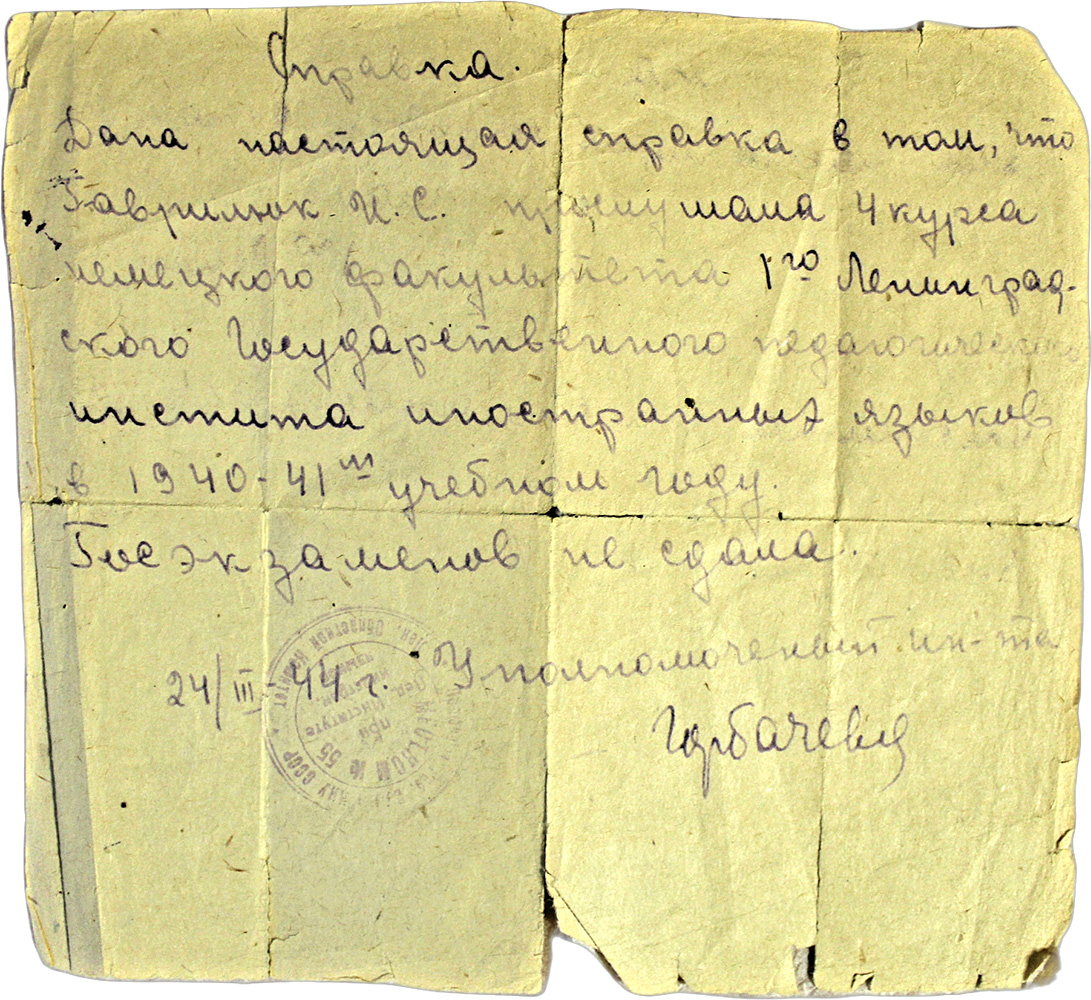 Справка.
Дана настоящая справка в том, что
Гаврилюк И.С. прослушала 4 курса
немецкого факультета 1го Ленинград-
ского Государственного педагогического
инстита иностранных языков
в 1940-41м учебном году.
Госэкзаменов не сдала.
24/III-44 г. Уполномоченый ин-та
Горбачева
Лен. Областной Комитет
МЕСТКОМ № 55
при
Институте
СССР